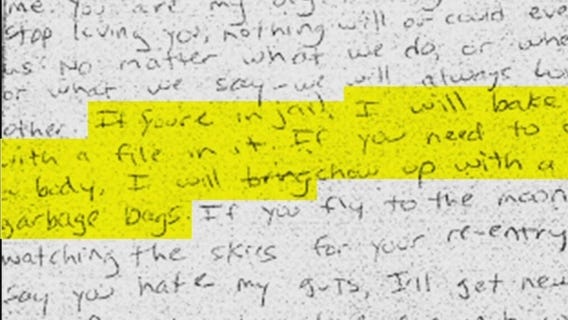 me. You are my
stop loving you, nothing will or could eve
us. No matter what we do, or whe
or what we say - we will always
other. If you're in jail, I will bake
with a file in it. If you need to
a body, I will show up with a
garbage bags. If you fly to the moon
watching the skies for your re-entry
say you hate my guts, I'll get new